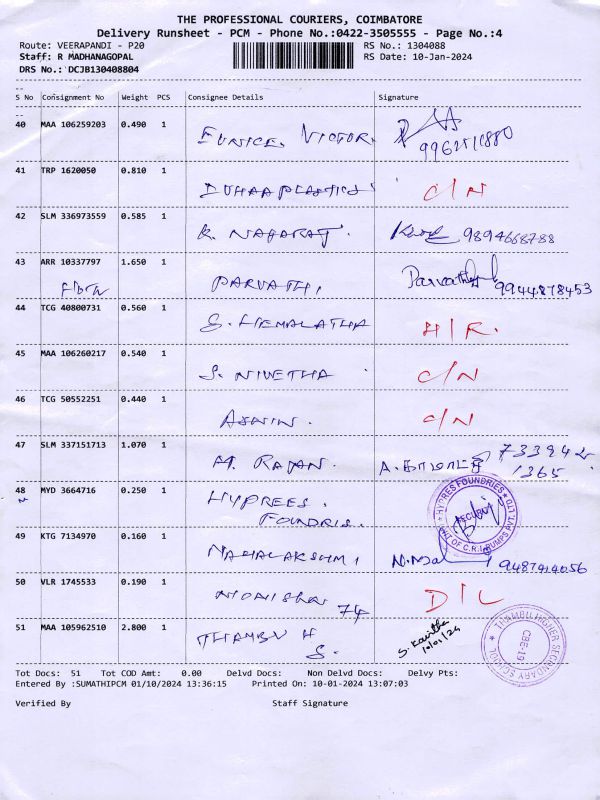 THE PROFESSIONAL COURIERS, COIMBATORE
Delivery Runsheet - PCM - Phone No.:0422-3505555 - Page No.:4
Route: VEERAPANDI - P20 RS No.: 1304088
Staff: R MADHANAGOPAL RS Date: 10-Jan-2024
DRS No.: DCJB130408804
S No Consignment No Weight PCS Consignee Details Signature
40 MAA 106259203 0.490 1
EUNICE. VICTOR.
41 TRP 1620050 0.810 1
DUHAA PLASTICS C/N
42 SLM 336973559 0.585 1
K. NAGARAJ. 9894668788
43 ARR 10337797 1.650 1
PARVATHI, Parvathy 9944878453
44 TCG 40800731 0.560 1
S. HEMALATHA H/R.
45 MAA 106260217 0.540 1
S. NIVETHA C/N
46 TCG 50552251 0.440 1
ASWIN. C/N
47 SLM 337151713 1.070 1 733942
M. RAJAN. 1365
48 MYD 3664716 0.250 1
HYPREES.
FOUNDRIS.
HYPRES FOUNDRIES
UNIT OF C.R.I. PUMPS PVT. LTD
49 KTG 7134970 0.160 1
MAHALAKSHMI 9487914056
50 VLR 1745533 0.190 1
MONISHA 74 D/L
51 MAA 105962510 2.800 1
THAMBU H
S.
S. Kavitha
10/01/24
THAMBU HIGHER SECONDARY SCHOOL
CBE-19
Tot Docs: 51 Tot COD Amt: 0.00 Delvd Docs: Non Delvd Docs: Delvy Pts:
Entered By :SUMATHIPCM 01/10/2024 13:36:15 Printed On: 10-01-2024 13:07:03
Verified By Staff Signature